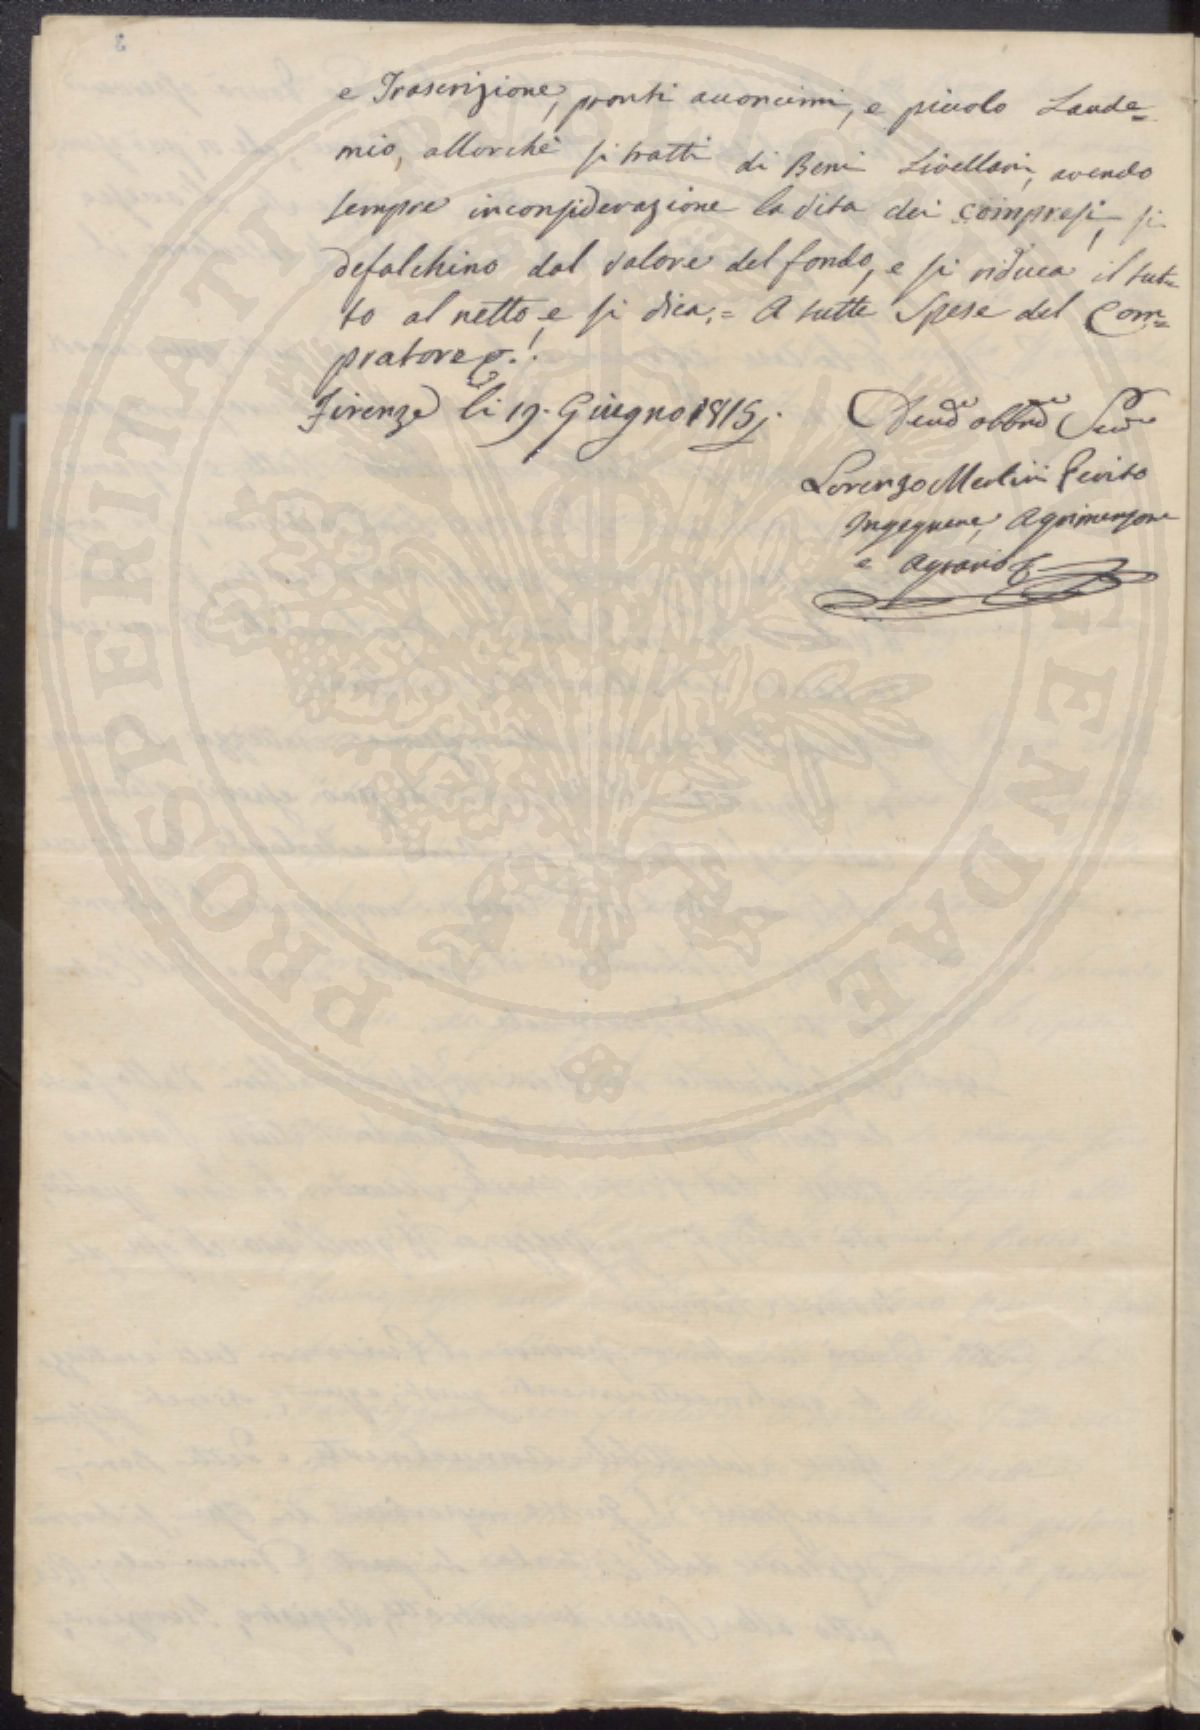 e Trascrizione, pronti acconcimi, e piccolo Laude=
mio, allorchè si tratti di Beni Livellari, avendo
sempre inconsiderazione la vita dei compresi, si
defalchino dal valore del fondo, e si riduca il tut=
to al netto e si dica: = A tutte Spese del Com=
pratore
Firenze li 19. Giugno 1815.
Lorenzo Merlini Perito
Ingegnere, Agrimensore
e Agrario
PROSPERITATI PUBLICAE AUGENDAE